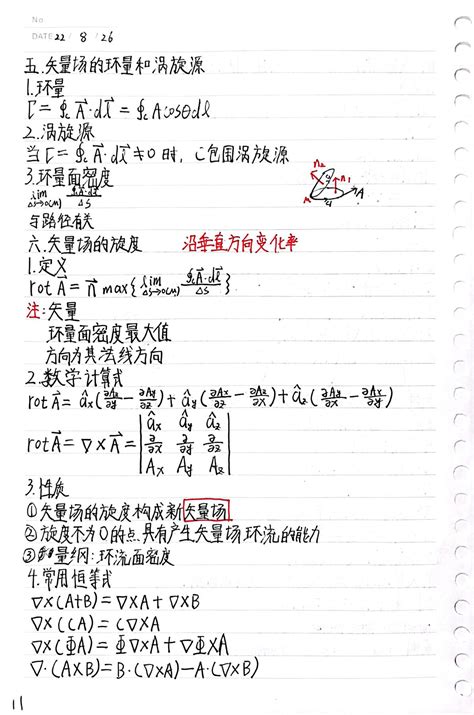 No
DATE 22 / 8 / 26
五.矢量场的环量和涡旋源
1.环量
Γ = ∮c A⃗·dl⃗ = ∮c Acosθdl
2.涡旋源
当Γ = ∮c A⃗·dl⃗ ≠ 0 时, C包围涡旋源
3.环量面密度
lim ΔS→0(M) ∮cA⃗·dl⃗ / ΔS
n₂ n₁ A M
与路径有关
六.矢量场的旋度 沿垂直方向变化率
1.定义
rot A⃗ = n⃗ max{lim ΔS→0(M) ∮cA⃗·dl⃗ / ΔS}
注:矢量
环量面密度最大值
方向为其法线方向
2.数学计算式
rot A⃗ = âx(∂Az/∂y − ∂Ay/∂z) + ây(∂Ax/∂z − ∂Az/∂x) + âz(∂Ay/∂x − ∂Ax/∂y)
rot A⃗ = ∇×A⃗ = | âx ây âz |
| ∂/∂x ∂/∂y ∂/∂z |
| Ax Ay Az |
3.性质
①矢量场的旋度构成新矢量场
②旋度不为0的点,具有产生矢量场环流的能力
③量纲:环流面密度
4.常用恒等式
∇×(A+B)=∇×A+∇×B
∇×(CA)=C∇×A
∇×(ΦA)=Φ∇×A+∇Φ×A
∇·(A×B)=B·(∇×A)−A·(∇×B)
11